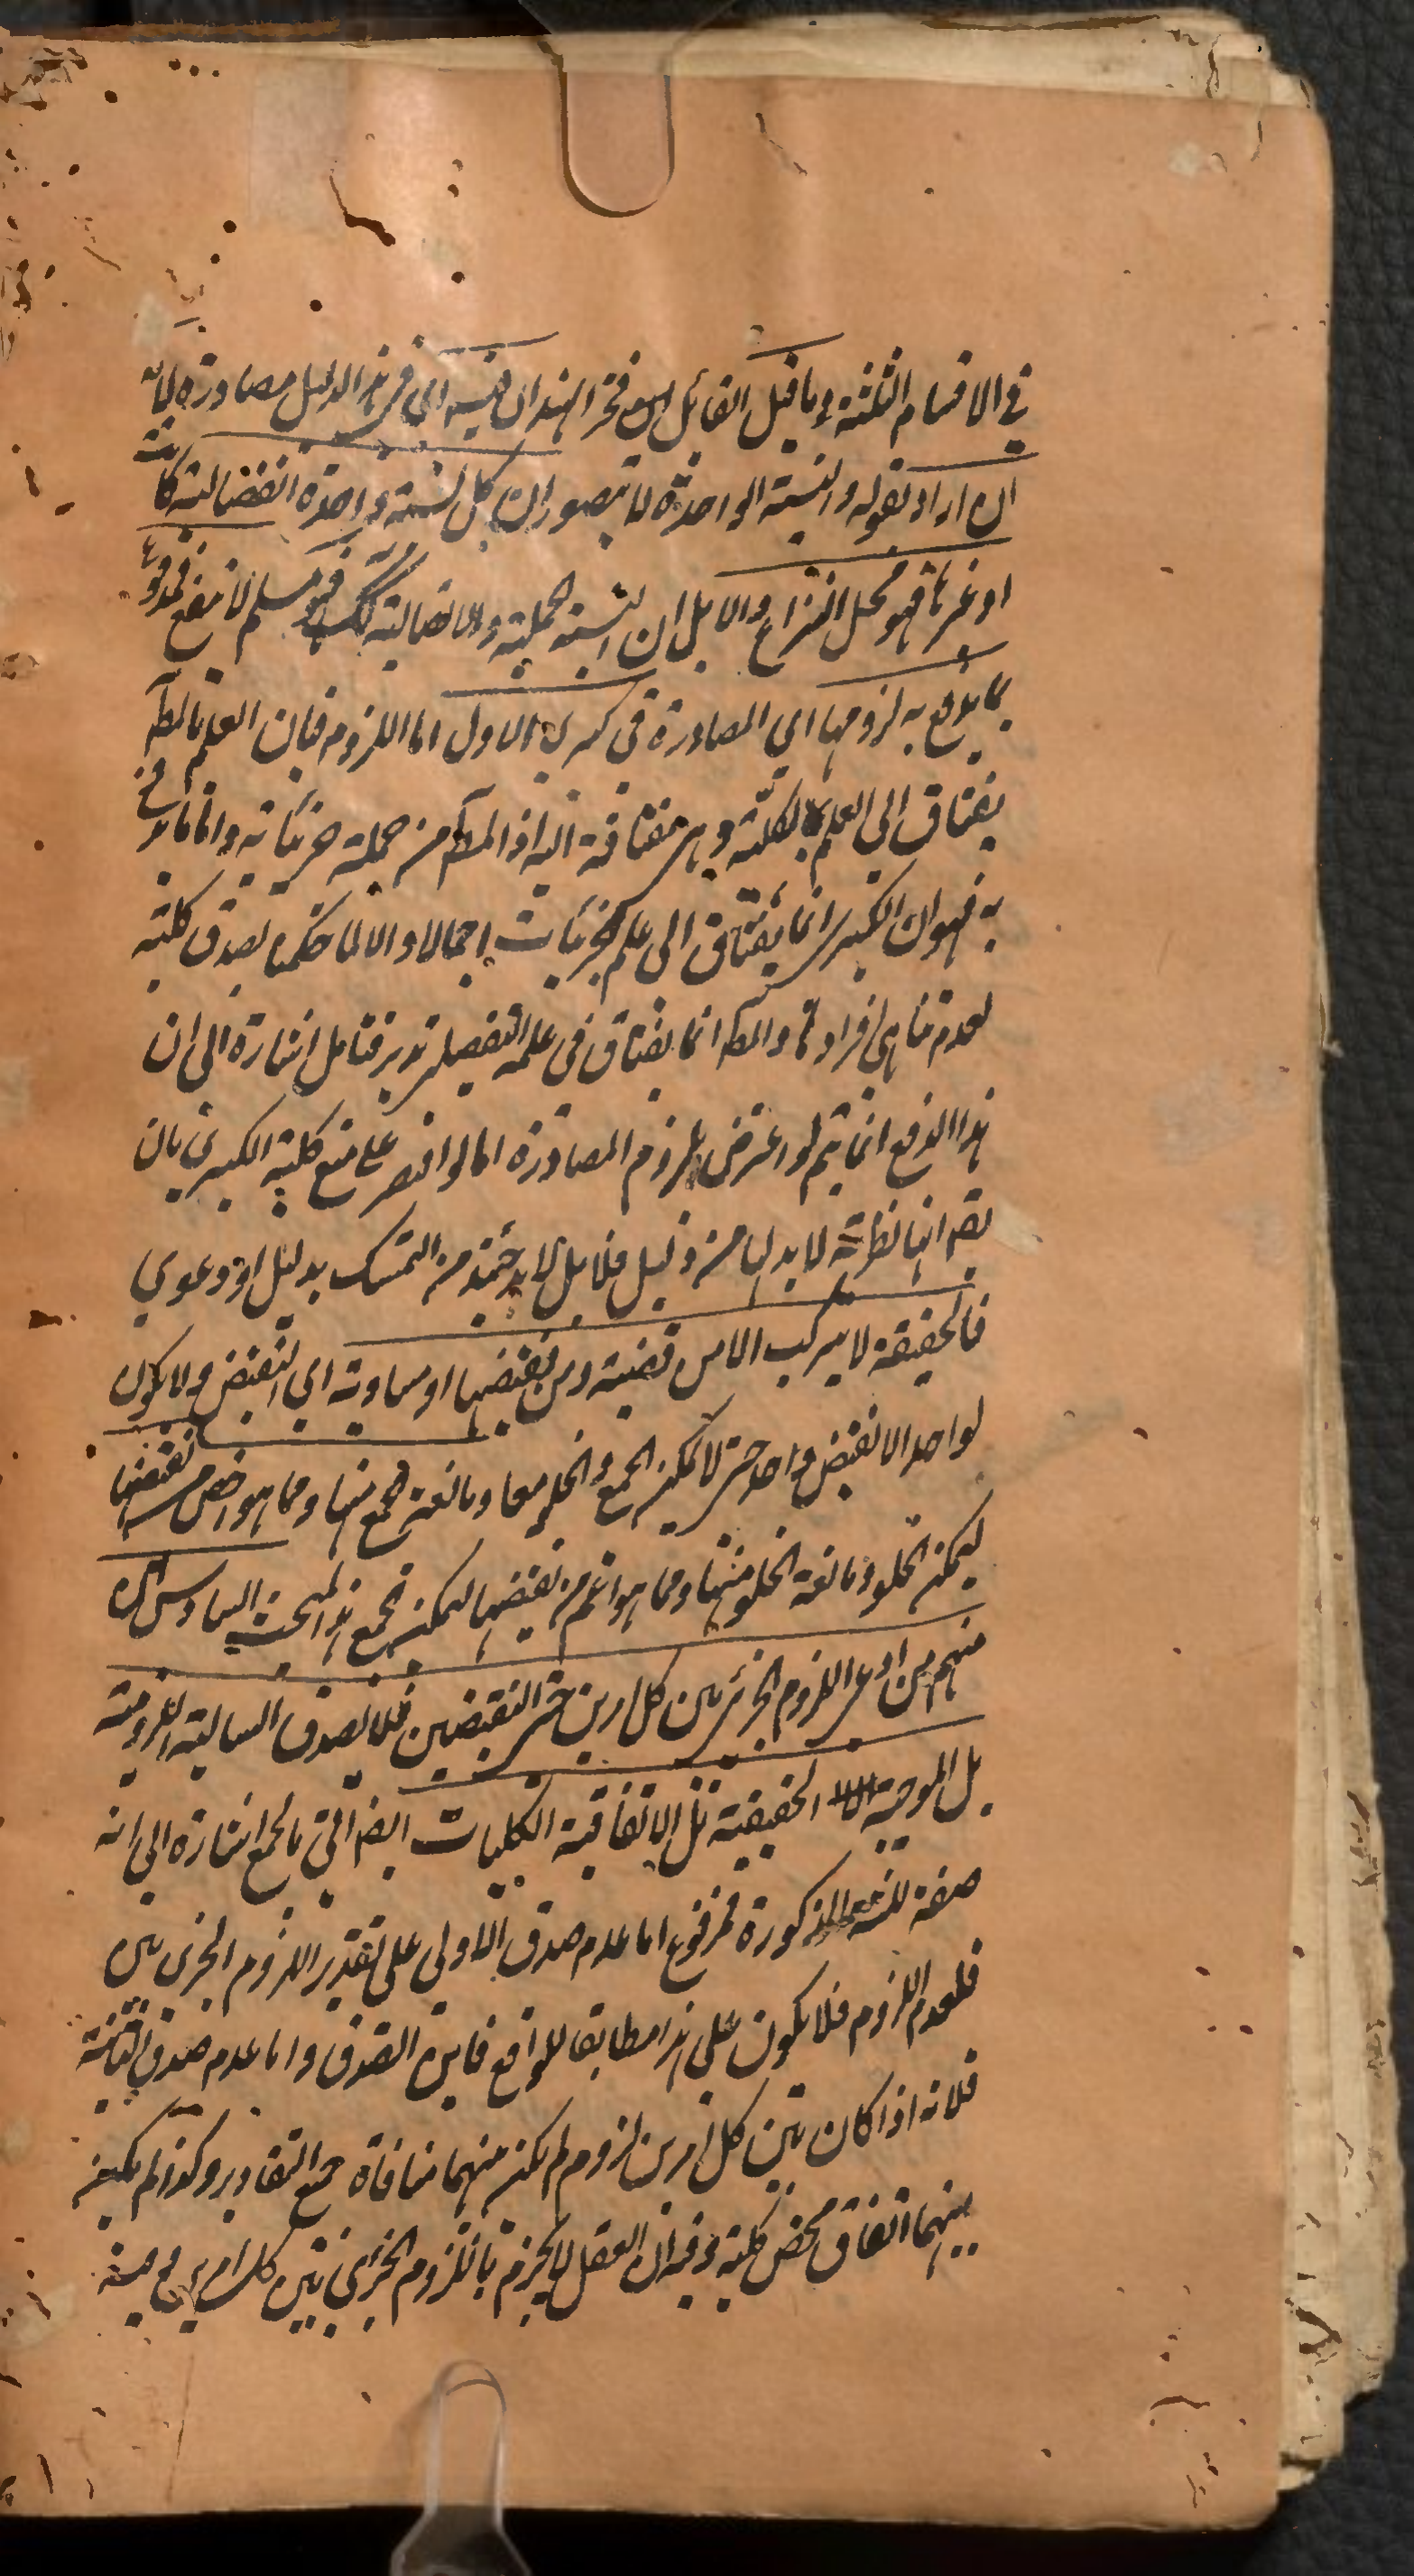 في الاقسام الثلثة وما قيل القائل ابو فخر الهند ان فيه اي في هذا الدليل مصادرة لانه
ان اراد بقوله والنسبة الواحدة لا يتصور ان كل نسبة واحدة انفصالية كانت
او غيرها فهو محل النزاع والا بل ان النسبة الحملية والاتصالية كك فهو مسلم لا ينفع فمدفوع
بما يدفع به لزومها اي المصادرة في كبرى الاول اما اللزوم فبان العلم بالمط
يفتاق الى العلم بالكلية وهي مفتاقة اليه اذ المط من جملة جزئياته واما ما يدفع
به فهو ان الكبرى انما يفتاق الى علم الجزئيات اجمالا والا لما حكمنا بصدق كلية
لعدم تناهي افرادها والمط انما يفتاق في علمه التفصيلي تدبر فتامل اشارة الى ان
هذا الدفع انما يتم لو اعترض بلزوم المصادرة اما لو اقتصر على منع كلية الكبرى بان
يقم انها نظرية لا بد لها من دليل فلا بل لا بد حينئذ من التمسك بدليل او دعوي
فالحقيقة لا يتركب الا من قضية ومن نقيضها او مساويه اي النقيض ولا يكون
لواحد الا نقيض واحد حتى لا يمكن الجمع والخلو معا ومانعة الجمع منها ومما هو اخص من نقيضها
ليمكن الخلو ومانعة الخلو منها ومما هو اعم من نقيضها ليمكن الجمع هذا المبحث السادس
منهم من ادعى اللزوم الجزئي بين كل امرين حتى النقيضين فلا يصدق السالبة اللزومية
بل الموجبة الحقيقية بل الاتفاقية الكليات ايضا اتى بالجمع اشارة الى انه
صفة للثلثة المذكورة فمرفوع اما عدم صدق الاولى على تقدير اللزوم الجزئي بين
فلعدم اللزوم فلا يكون على هذا مطابقا للواقع فاين الصدق واما عدم صدق الثانية
فلانه اذا كان بين كل امرين لزوم لم يكن منهما منافاة جميع التقادير وكذا لم يكن
بينهما اتفاق محض كلية وفيه ان العقل لا يجزم باللزوم الجزئي بين كل امرين